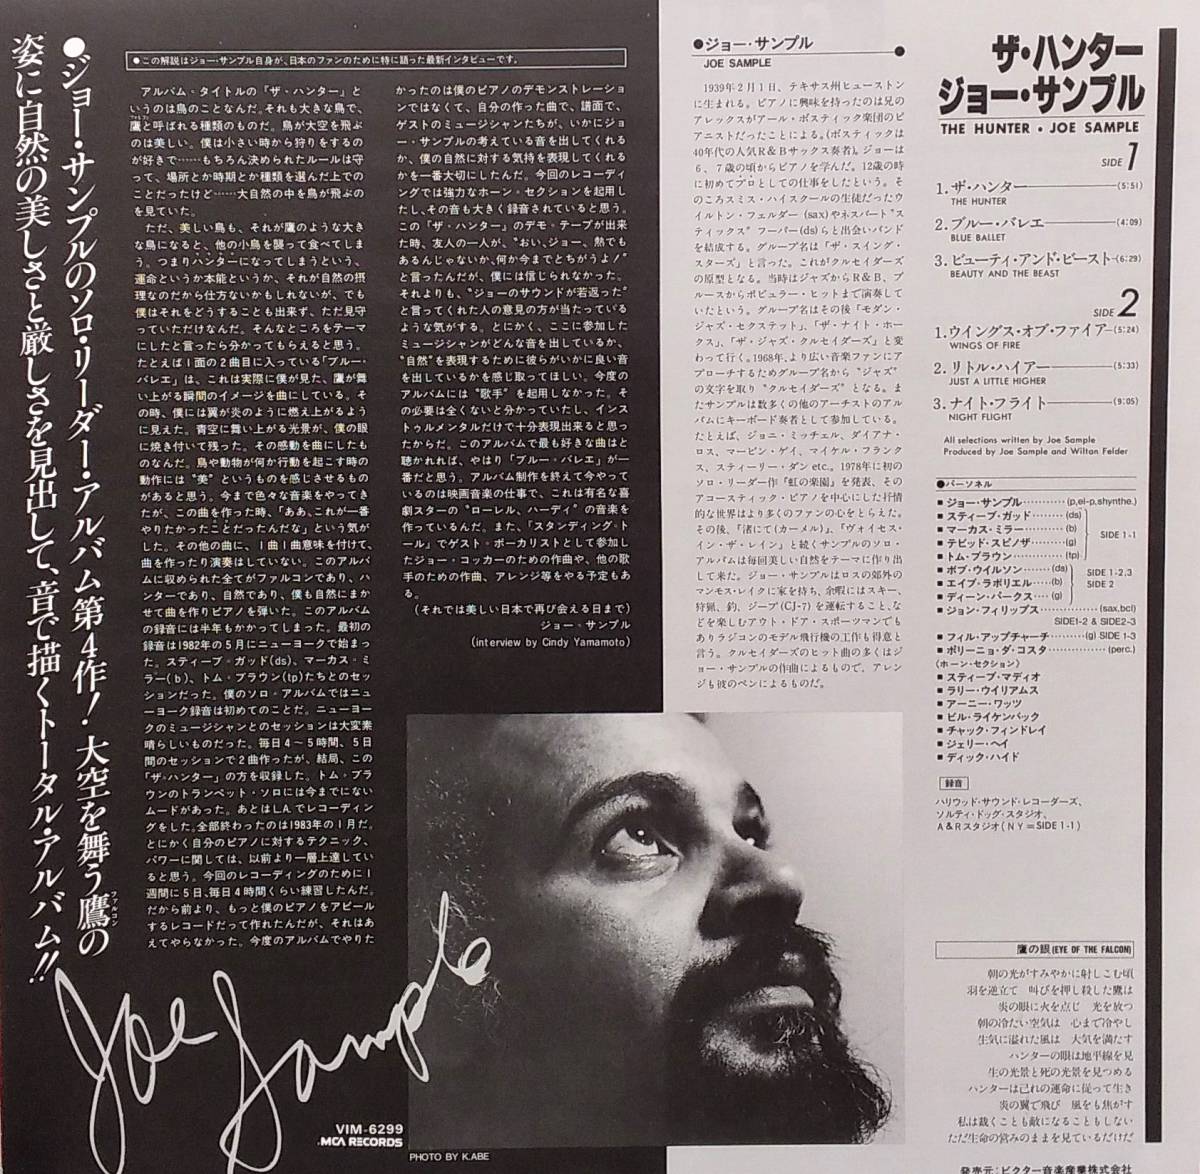 ●ジョー・サンプルのソロ・リーダー・アルバム第4作！大空を舞う鷹の
ファルコン
姿に自然の美しさと厳しさを見出して、音で描くトータル・アルバム!!
●この解説はジョー・サンプル自身が、日本のファンのために特に語った最新インタビューです。
アルバム・タイトルの『ザ・ハンター』と
いうのは鳥のことなんだ。それも大きな鳥で、
鷹と呼ばれる種類のものだ。鳥が大空を飛ぶ
のは美しい。僕は小さい時から狩りをするの
が好きで……もちろん決められたルールは守
って、場所とか時期とか種類を選んだ上での
ことだったけど……大自然の中を鳥が飛ぶの
を見ていた。
ただ、美しい鳥も、それが鷹のような大き
な鳥になると、他の小鳥を襲って食べてしま
う。つまりハンターになってしまうという、
運命というか本能というか、それが自然の摂
理なのだから仕方ないかもしれないが、でも
僕はそれをどうすることも出来ず、ただ見守
っていただけなんだ。そんなところをテーマ
にしたと言ったら分かってもらえると思う。
たとえば1面の2曲目に入っている「ブルー・
バレエ」は、これは実際に僕が見た、鷹が舞
い上がる瞬間のイメージを曲にしている。そ
の時、僕には翼が炎のように燃え上がるよう
に見えた。青空に舞い上がる光景が、僕の眼
に焼き付いて残った。その感動を曲にしたも
のなんだ。鳥や動物が何か行動を起こす時の
動作には“美”というものを感じさせるもの
があると思う。今まで色々な音楽をやってき
たが、この曲を作った時、「ああ、これが一番
やりたかったことだったんだな」という気が
した。その他の曲に、1曲1曲意味を付けて、
曲を作ったり演奏はしていない。このアルバ
ムに収められた全てがファルコンであり、ハ
ンターであり、自然であり、僕も自然にまか
せて曲を作りピアノを弾いた。このアルバム
の録音には半年もかかってしまった。最初の
録音は1982年の5月にニューヨークで始まっ
た。スティーブ・ガッド(ds)、マーカス・ミ
ラー(b)、トム・ブラウン(tp)たちとのセッ
ションだった。僕のソロ・アルバムではニュ
ーヨーク録音は初めてのことだ。ニューヨー
クのミュージシャンとのセッションは大変素
晴らしいものだった。毎日4～5時間、5日
間のセッションで2曲作ったが、結局、この
「ザ・ハンター」の方を収録した。トム・ブラ
ウンのトランペット・ソロには今までにない
ムードがあった。あとはL.A.でレコーディン
グをした。全部終わったのは1983年の1月だ。
とにかく自分のピアノに対するテクニック、
パワーに関しては、以前より一層上達してい
ると思う。今回のレコーディングのために1
週間に5日、毎日4時間くらい練習したんだ。
だから前より、もっと僕のピアノをアピール
するレコードだって作れたんだが、それはあ
えてやらなかった。今度のアルバムでやりた
かったのは僕のピアノのデモンストレーショ
ンではなくて、自分の作った曲で、譜面で、
ゲストのミュージシャンたちが、いかにジョ
ー・サンプルの考えている音を出してくれる
か、僕の自然に対する気持を表現してくれる
かを一番大切にしたんだ。今回のレコーディ
ングでは強力なホーン・セクションを起用し
たし、その音も大きく録音されていると思う。
この『ザ・ハンター』のデモ・テープが出来
た時、友人の一人が、“おい、ジョー、熱でも
あるんじゃないか、何か今までとちがうよ!”
と言ったんだが、僕には信じられなかった。
それよりも、“ジョーのサウンドが若返った”
と言ってくれた人の意見の方が当たっている
ような気がする。とにかく、ここに参加した
ミュージシャンがどんな音を出しているか、
“自然”を表現するために彼らがいかに良い音
を出しているかを感じ取ってほしい。今度の
アルバムには“歌手”を起用しなかった。そ
の必要は全くないと分かっていたし、インス
トゥルメンタルだけで十分表現出来ると思っ
たからだ。このアルバムで最も好きな曲はと
聴かれれば、やはり「ブルー・バレエ」が一
番だと思う。アルバム制作を終えて今やって
いるのは映画音楽の仕事で、これは有名な喜
劇スターの“ローレル、ハーディ”の音楽を
作っているんだ。また、「スタンディング・ト
ール」でゲスト・ボーカリストとして参加し
たジョー・コッカーのための作曲や、他の歌
手のための作曲、アレンジ等をやる予定もあ
る。
(それでは美しい日本で再び会える日まで)
ジョー・サンプル
(interview by Cindy Yamamoto)
Joe Sample
VIM-6299
MCA RECORDS
PHOTO BY K.ABE
●ジョー・サンプル
JOE SAMPLE
1939年2月1日、テキサス州ヒューストン
に生まれる。ピアノに興味を持ったのは兄の
アレックスがアール・ボスティック楽団のピ
アニストだったことによる。(ボスティックは
40年代の人気R&Bサックス奏者)。ジョーは
6、7歳の頃からピアノを学んだ。12歳の時
に初めてプロとしての仕事をしたという。そ
のころスミス・ハイスクールの生徒だったウ
イルトン・フェルダー(sax)やネスバート“ス
ティックス”フーパー(ds)らと出会いバンド
を結成する。グループ名は「ザ・スイング・
スターズ」と言った。これがクルセイダーズ
の原型となる。当時はジャズからR&B、ブ
ルースからポピュラー・ヒットまで演奏して
いたという。グループ名はその後「モダン・
ジャズ・セクステット」、「ザ・ナイト・ホー
クス」、「ザ・ジャズ・クルセイダーズ」と変
わって行く。1968年、より広い音楽ファンにア
プローチするためグループ名から“ジャズ”
の文字を取り“クルセイダーズ”となる。ま
たサンプルは数多くの他のアーチストのアル
バムにキーボード奏者として参加している。
たとえば、ジョニ・ミッチェル、ダイアナ・
ロス、マービン・ゲイ、マイケル・フランク
ス、スティーリー・ダンetc.。1978年に初の
ソロ・リーダー作『虹の楽園』を発表、その
アコースティック・ピアノを中心にした抒情
的な世界はより多くのファンの心をとらえた。
その後、『渚にて(カーメル)』、『ヴォイセス・
イン・ザ・レイン』と続くサンプルのソロ・
アルバムは毎回美しい自然をテーマに作り出
して来た。ジョー・サンプルはロスの郊外の
マンモス・レイクに家を持ち、余暇にはスキー、
狩猟、釣、ジープ(CJ-7)を運転すること、な
どを楽しむアウト・ドア・スポーツマンでも
ありラジコンのモデル飛行機の工作も得意と
言う。クルセイダーズのヒット曲の多くはジ
ョー・サンプルの作曲によるもので、アレン
ジも彼のペンによるものだ。
ザ・ハンター
ジョー・サンプル
THE HUNTER・JOE SAMPLE
SIDE 1
1. ザ・ハンター (5:51)
THE HUNTER
2. ブルー・バレエ (4:09)
BLUE BALLET
3. ビューティ・アンド・ビースト (6:29)
BEAUTY AND THE BEAST
SIDE 2
1. ウイングス・オブ・ファイア (5:24)
WINGS OF FIRE
2. リトル・ハイアー (5:33)
JUST A LITTLE HIGHER
3. ナイト・フライト (9:05)
NIGHT FLIGHT
All selections written by Joe Sample
Produced by Joe Sample and Wiltan Felder
●パーソネル
■ジョー・サンプル…………(p,el-p,shynthe.)
■スティーブ・ガッド………(ds)
■マーカス・ミラー…………(b)
■デビッド・スピノザ………(g)
■トム・ブラウン……………(tp)
SIDE 1-1
■ボブ・ウイルソン…………(ds)
■エイブ・ラボリエル………(b)
■ディーン・パークス………(g)
SIDE 1-2,3
SIDE 2
■ジョン・フィリップス……………(sax,bcl)
SIDE1-2 & SIDE2-3
■フィル・アップチャーチ………(g) SIDE 1-3
■ポリーニョ・ダ・コスタ……………(perc.)
(ホーン・セクション)
■スティーブ・マディオ
■ラリー・ウイリアムス
■アーニー・ワッツ
■ビル・ライケンバック
■チャック・フィンドレイ
■ジェリー・ヘイ
■ディック・ハイド
録音
ハリウッド・サウンド・レコーダーズ、
ソルティ・ドッグ・スタジオ、
A&Rスタジオ(NY=SIDE 1-1)
鷹の眼(EYE OF THE FALCON)
朝の光がすみやかに射しこむ頃
羽を逆立て 叫びを押し殺した鷹は
炎の眼に火を点じ 光を放つ
朝の冷たい空気は 心まで冷やし
生気に溢れた風は 大気を満たす
ハンターの眼は地平線を見
生の光景と死の光景を見つめる
ハンターは己れの運命に従って生き
炎の翼で飛び 風をも焦がす
私は裁くことも敵になることもしない
ただ生命の営みのままを見ているだけだ
発売元:ビクター音楽産業株式会社